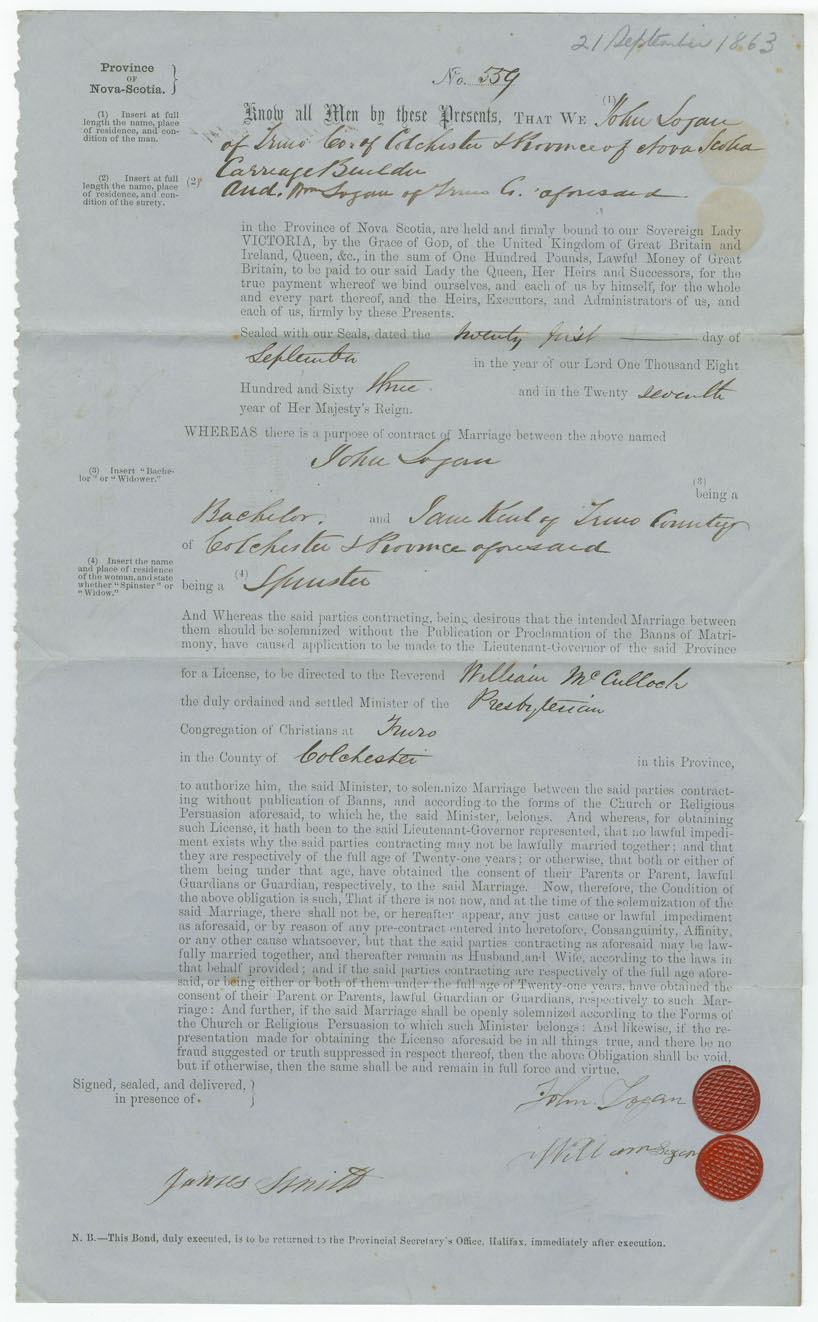 21 September 1863
Province
OF
Nova-Scotia.
No. 559
(1) Insert at full
length the name, place
of residence, and con-
dition of the man.
Know all Men by these Presents, THAT WE (1) John Logan
of Truro Co. of Colchester & Province of Nova Scotia
Carriage Builder
(2) Insert at full
length the name, place
of residence, and con-
dition of the surety.
(2) And. Wm Logan of Truro Co. aforesaid
in the Province of Nova Scotia, are held and firmly bound to our Sovereign Lady
VICTORIA, by the Grace of GOD, of the United Kingdom of Great Britain and
Ireland, Queen, &c., in the sum of One Hundred Pounds, Lawful Money of Great
Britain, to be paid to our said Lady the Queen, Her Heirs and Successors, for the
true payment whereof we bind ourselves, and each of us by himself, for the whole
and every part thereof, and the Heirs, Executors, and Administrators of us, and
each of us, firmly by these Presents.
Sealed with our Seals, dated the twenty first day of
September in the year of our Lord One Thousand Eight
Hundred and Sixty three and in the Twenty seventh
year of Her Majesty's Reign.
WHEREAS there is a purpose of contract of Marriage between the above named
John Logan
(3) Insert "Bache-
lor" or "Widower."
(3)
being a
Bachelor. and Jane Kent of Truro County
of Colchester & Province aforesaid
(4) Insert the name
and place of residence
of the woman, and state
whether "Spinster" or
"Widow."
being a (4) Spinster
And Whereas the said parties contracting, being desirous that the intended Marriage between
them should be solemnized without the Publication or Proclamation of the Banns of Matri-
mony, have caused application to be made to the Lieutenant-Governor of the said Province
for a License, to be directed to the Reverend William McCulloch
the duly ordained and settled Minister of the Presbyterian
Congregation of Christians at Truro
in the County of Colchester in this Province,
to authorize him, the said Minister, to solemnize Marriage between the said parties contract-
ing without publication of Banns, and according to the forms of the Church or Religious
Persuasion aforesaid, to which he, the said Minister, belongs. And whereas, for obtaining
such License, it hath been to the said Lieutenant-Governor represented, that no lawful impedi-
ment exists why the said parties contracting may not be lawfully married together; and that
they are respectively of the full age of Twenty-one years; or otherwise, that both or either of
them being under that age, have obtained the consent of their Parents or Parent, lawful
Guardians or Guardian, respectively, to the said Marriage. Now, therefore, the Condition of
the above obligation is such, That if there is not now, and at the time of the solemnization of the
said Marriage, there shall not be, or hereafter appear, any just cause or lawful impediment
as aforesaid, or by reason of any pre-contract entered into heretofore, Consanguinity, Affinity,
or any other cause whatsoever, but that the said parties contracting as aforesaid may be law-
fully married together, and thereafter remain as Husband and Wife, according to the laws in
that behalf provided; and if the said parties contracting are respectively of the full age afore-
said, or being either or both of them under the full age of Twenty-one years, have obtained the
consent of their Parent or Parents, lawful Guardian or Guardians, respectively to such Mar-
riage: And further, if the said Marriage shall be openly solemnized according to the Forms of
the Church or Religious Persuasion to which such Minister belongs: And likewise, if the re-
presentation made for obtaining the License aforesaid be in all things true, and there be no
fraud suggested or truth suppressed in respect thereof, then the above Obligation shall be void,
but if otherwise, then the same shall be and remain in full force and virtue.
Signed, sealed, and delivered,
in presence of
John. Logan
William Logan
James Smith
N. B.—This Bond, duly executed, is to be returned to the Provincial Secretary's Office, Halifax, immediately after execution.